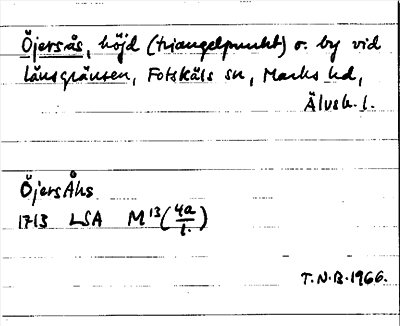 Öjersås, höjd (triangelpunkt) o. by vid
länsgränsen, Fotskäls sn, Marks hd,
Älvsb. l.
ÖjersÅhs
1713 LSA M 13 (4a/1.)
T.N.B. 1966.